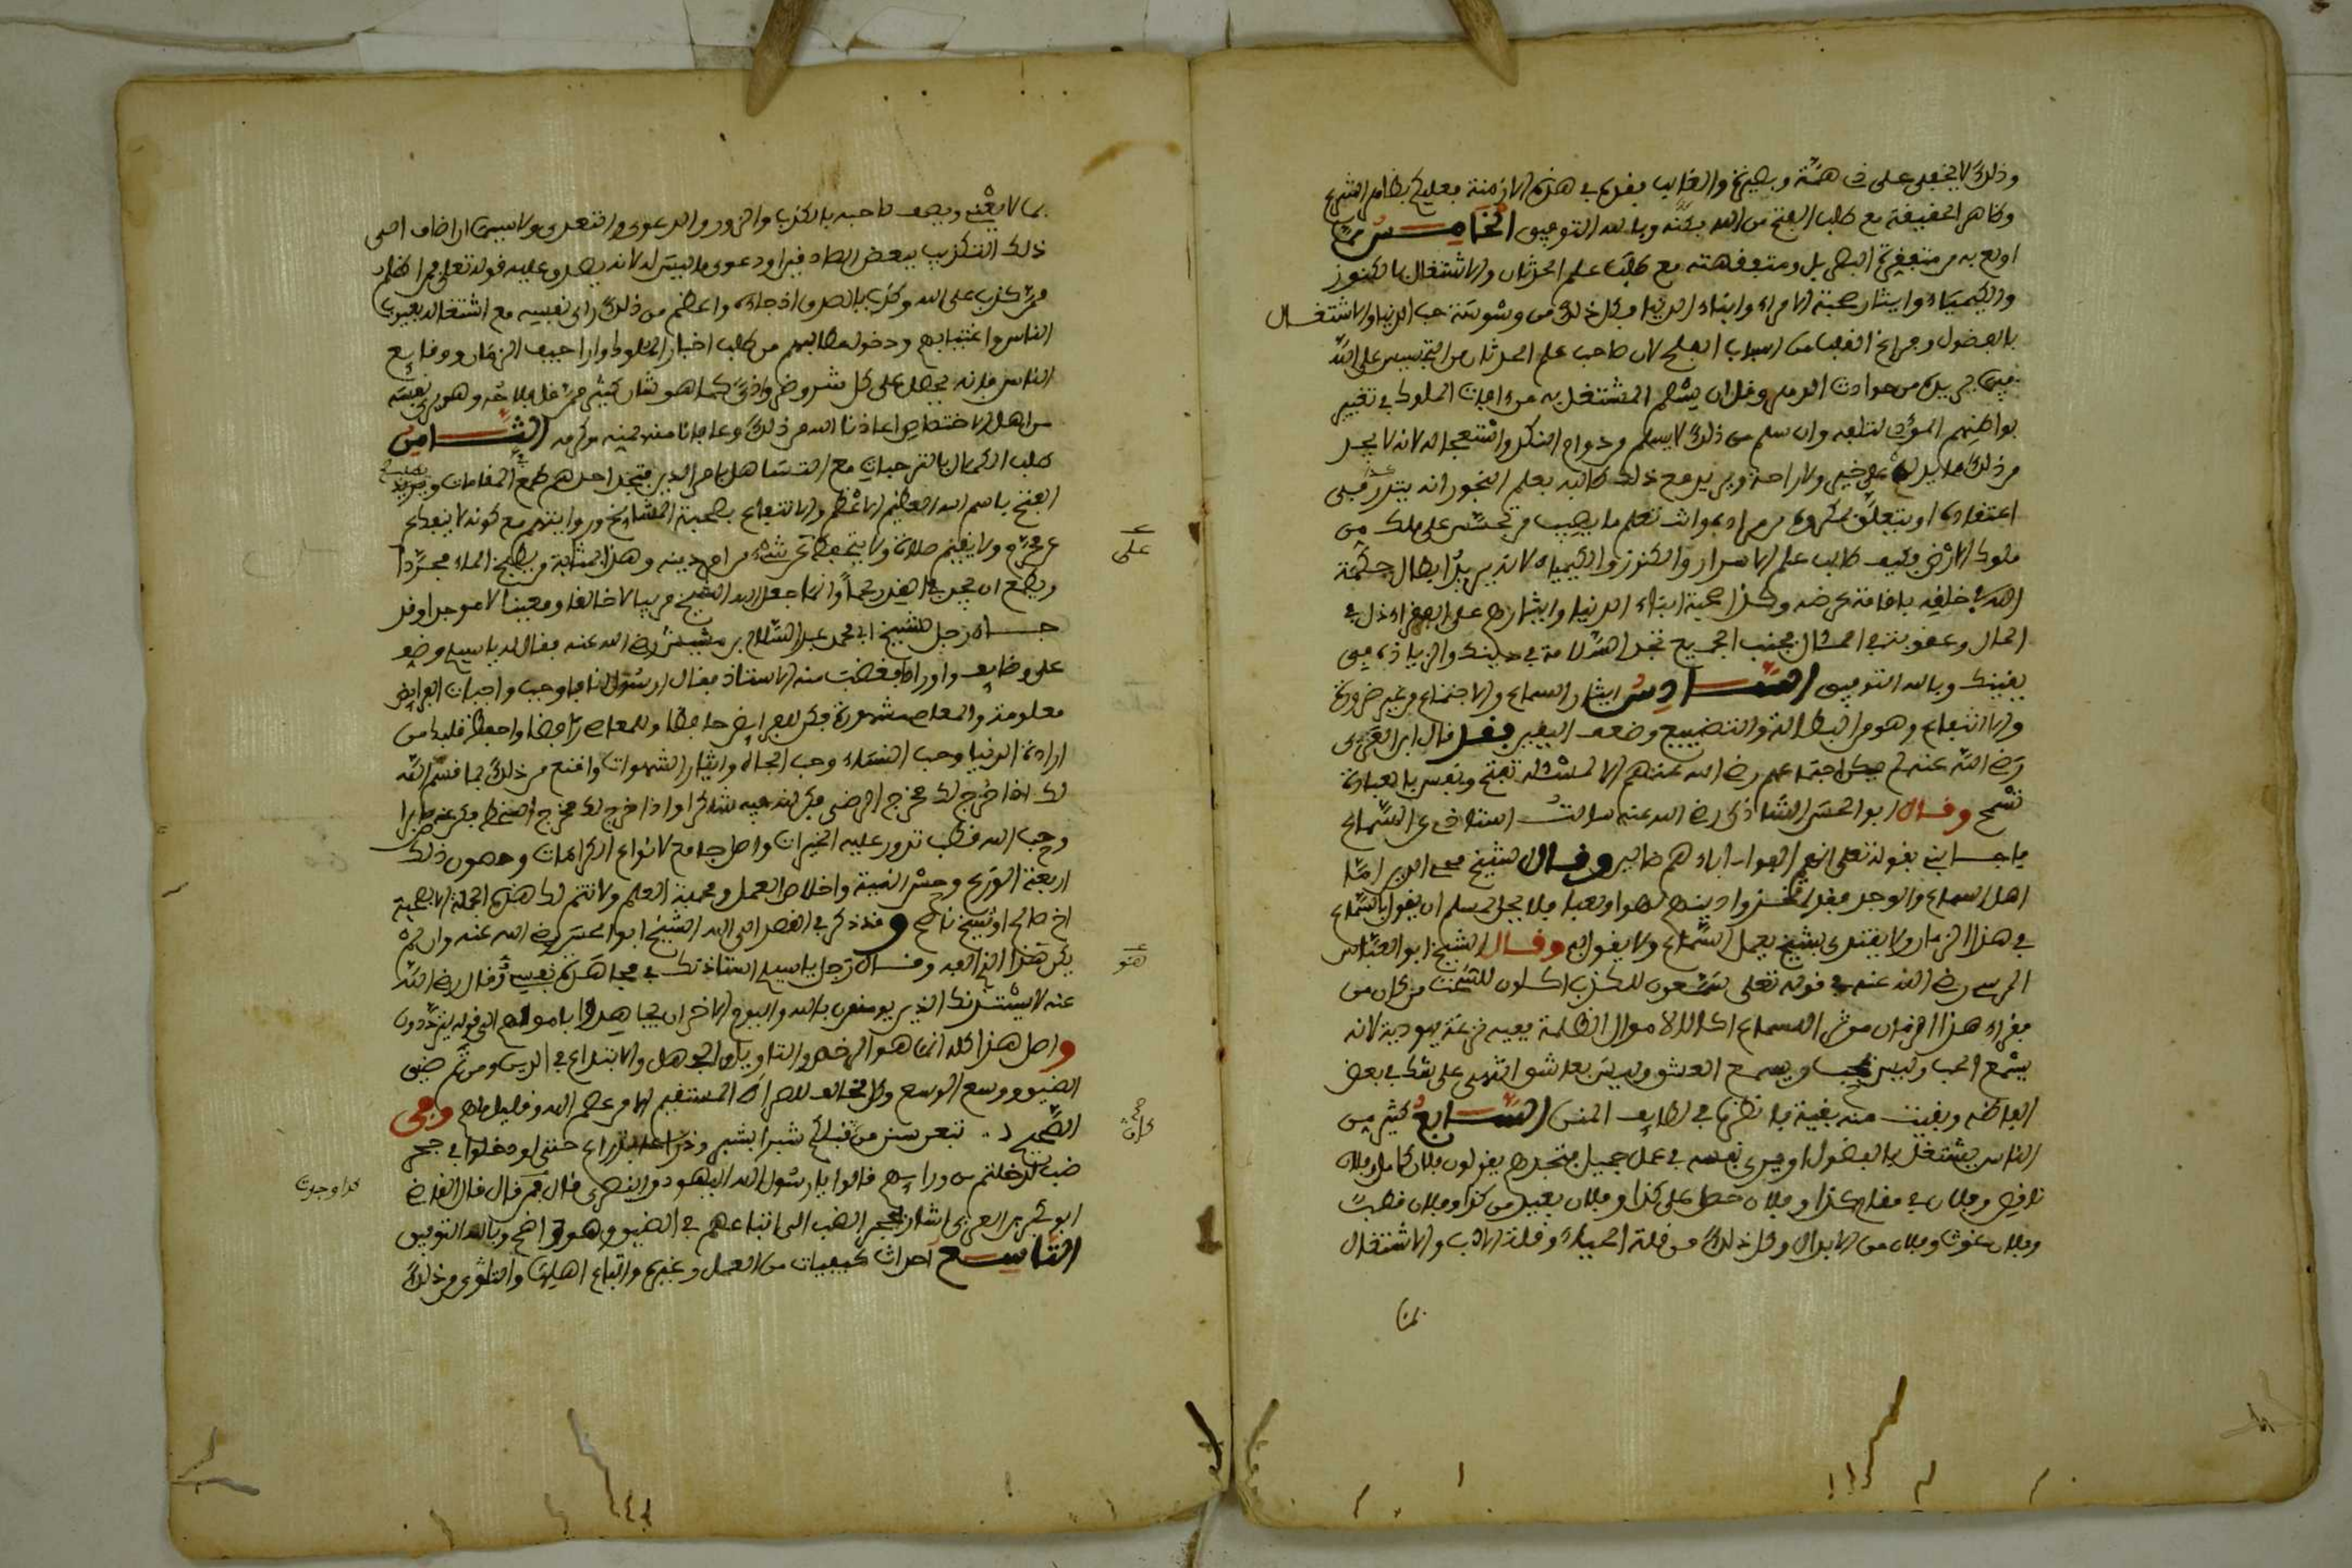 وذلك لا يخفى على ذى همة وبصيرة والغالب فقده في هذه الازمنة فعليك بظاهر الشرع
وظاهر الحقيقة مع طلب الفتح من الله بمنه وبالله التوفيق الخامس مما
اولع به من متفقرة البطل ومتفقهته مع طلب علم الحدثان والاشتغال بالكنوز
والكيمياء وايثار صحبة الامراء وابناء الدنيا وكل ذلك من وسوسة حب الدنيا والاشتغال
بالفضول وجراح القصا من اسباب الفلح لان صاحب علم الحدثان من التجسس على الله
فيما يريده من حوادث الدهر وقل ان يسلم المشتغل به من ءافات الملوك في تغيير
بواطنهم المؤدى لتلفه وان سلم من ذلك لا يسلم من دوام النكد واستعجاله لانه لا يجد
من ذلك ما يدل على خير ولا راحة ويزيد مع ذلك طالبه بعلم النجوم انه يتزندق في
اعتقاده او يتعلق بمكروه من مراده واشد تعلم ما يصيب من تجسس على ملك من
ملوك الارض فكيف طالب علم الاسرار والكنوز والكيمياء لانه يريد ابطال حكمة
الله في خلقه باقامة غرضه وكذا صحبة ابناء الدنيا وايثارهم على الفقراء ذل في
الحال وعقوبة في المئال فجنب الجميع تجد السلامة في دينك والزيادة في
يقينك وبالله التوفيق السادس ايثار السماع والاجتماع من غير ضرورة
ولا انتفاع وهو من البطالة والتضييع وضعف اليقين فقد قال ابن العربى
رضي الله عنه لم يكن اجتماعهم رضي الله عنهم الا لمسئلة تفتح ونفس بالعبادة
تسمح وقال ابو الحسن الشاذلى رضي الله عنه سالت استاذى عن السماع
فاجابني بقوله تعلى انهم الفوا ءاباءهم ضالين وقال الشيخ محى الدين اما
اهل السماع والوجد فقد اتخذوا دينهم لهوا ولعبا فلا يحل لمسلم ان يقول بالسماع
في هذا الزمان ولا يقتدى بشيخ يعمل السماع ولا يقول به وقال الشيخ ابو العباس
المرسى رضي الله عنه في قوله تعلى سمعون للكذب اكلون للسحت من كان من
فقراء هذا الزمان موثر السماع اكالا لاموال الظلمة ففيه نزغة يهودية لانه
يسمع الحب وليس بمحب ويسمع العشق وليس بعاشق انتهى على شك في بعض
الفاظه وبقيت منه بقية فانظرها في لطايف المنن السابع كثير من
الناس يشتغل بالفضول ويرى نفسه في عمل جميل فتجدهم يقولون فلان كامل وفلان
ناقص وفلان في مقام كذا وفلان حط على كذا وفلان بعيد من كذا وفلان قطب
وفلان غوث وفلان من الابدال وكل ذلك من قلة الحياء وقلة الادب والاشتغال
بما
بما لا يعني ويصف صاحبه بالكذب والزور والدعوى والتعدى ولا سيما ان اضاف الى
ذلك التكذيب ببعض الصادقين او دعوى ما ليس له لانه يصدق عليه قوله تعلى فمن اظلم
ممن كذب على الله وكذب بالصدق اذ جاءه واعظم من ذلك راى نفسه مع اشتغاله بعيوب
الناس واغتيابهم ودخوله مطالبهم من طلب اخبار الملوك واراجيف الزمان ووقايع
الناس فانه يحصل على كل شر وضر واذى كما هو شان كثير ممن قل فلاحه وهو يرى نفسه
من اهل الاختصاص اعاذنا الله من ذلك وعافانا منه بمنه وكرمه الثامن
طلب الكمال بالترهات مع التساهل بامر الدين فتجد احدهم يطمع في المقامات ويريد
الفتح باسم الله العظيم الاعظم والانتفاع بصحبة المشايخ ورؤيتهم مع كونه لا ينفك
عن محرم ولا يقيم صلاة ولا يتحفظ على شىء من امر دينه وهذا بمثابة من يطبخ الماء مجردا
على
ويطمع ان يجد في القدر لحما وانما جعل الله الشيخ مربيا لا خالقا ومعينا لا موجدا وقد
جاء رجل للشيخ ابى محمد عبد السلام بن مشيش رضي الله عنه فقال له ياسيدى وضف
على وضايف واورادا فغضب منه الاستاذ فقال ارسول انا فاوجب واجبات الفرايض
معلومة والمعاصى مشهورة فكن للفرايض حافظا وللمعاصى رافضا واحفظ قلبك من
ارادة الدنيا وحب النساء وحب الجاه وايثار الشهوات واقنع من ذلك بما قسم الله
لك اذا خرج لك مخرج الرضى فكن لله فيه شاكرا واذا خرج لك مخرج السخط فكن عنه صابرا
وحب الله قطب تدور عليه الخيرات واصل جامع لانواع الكرامات وحصون ذلك
اربعة الورع وحسن النية واخلاص العمل وصحبة العلم ولا تتم لك هذه الجملة الا بصحبة
اخ صالح او شيخ ناصح وقد ذكر في القصد الى الله الشيخ ابو الحسن رضي الله عنه وان لم
يكن هذا الذى الفه وقال رجل ياسيدى استاذنك في مجاهدة نفسى فقال رضي الله
هو
عنه لا يستئذنك الذين يومنون بالله واليوم الاخر ان يجاهدوا باموالهم الى قوله يترددون
واصل هذا كله انما هو الرخص والتاويل والجهل والابتداع في الدين ومن ثم ضيق
الضيق ووسع الوسع وكل مخالف للصراط المستقيم الا من عصم الله وقليل ما هم وفى
الصحيح لتتبعن سنن من قبلكم شبرا بشبر وذراعا بذراع حتى لو دخلوا في جحر
ضب لدخلتم من ورايهم قالوا يا رسول الله اليهود والنصرى قال فمن قال قال القاضى
ابو بكر بن العربى اشار بجحر الضب الى اتباعهم في الضيق وهو واضح وبالله التوفيق
التاسع احداث كيفيات من العمل وغيره واتباع اهلها والتلذذ بذلك
كذا وجدت